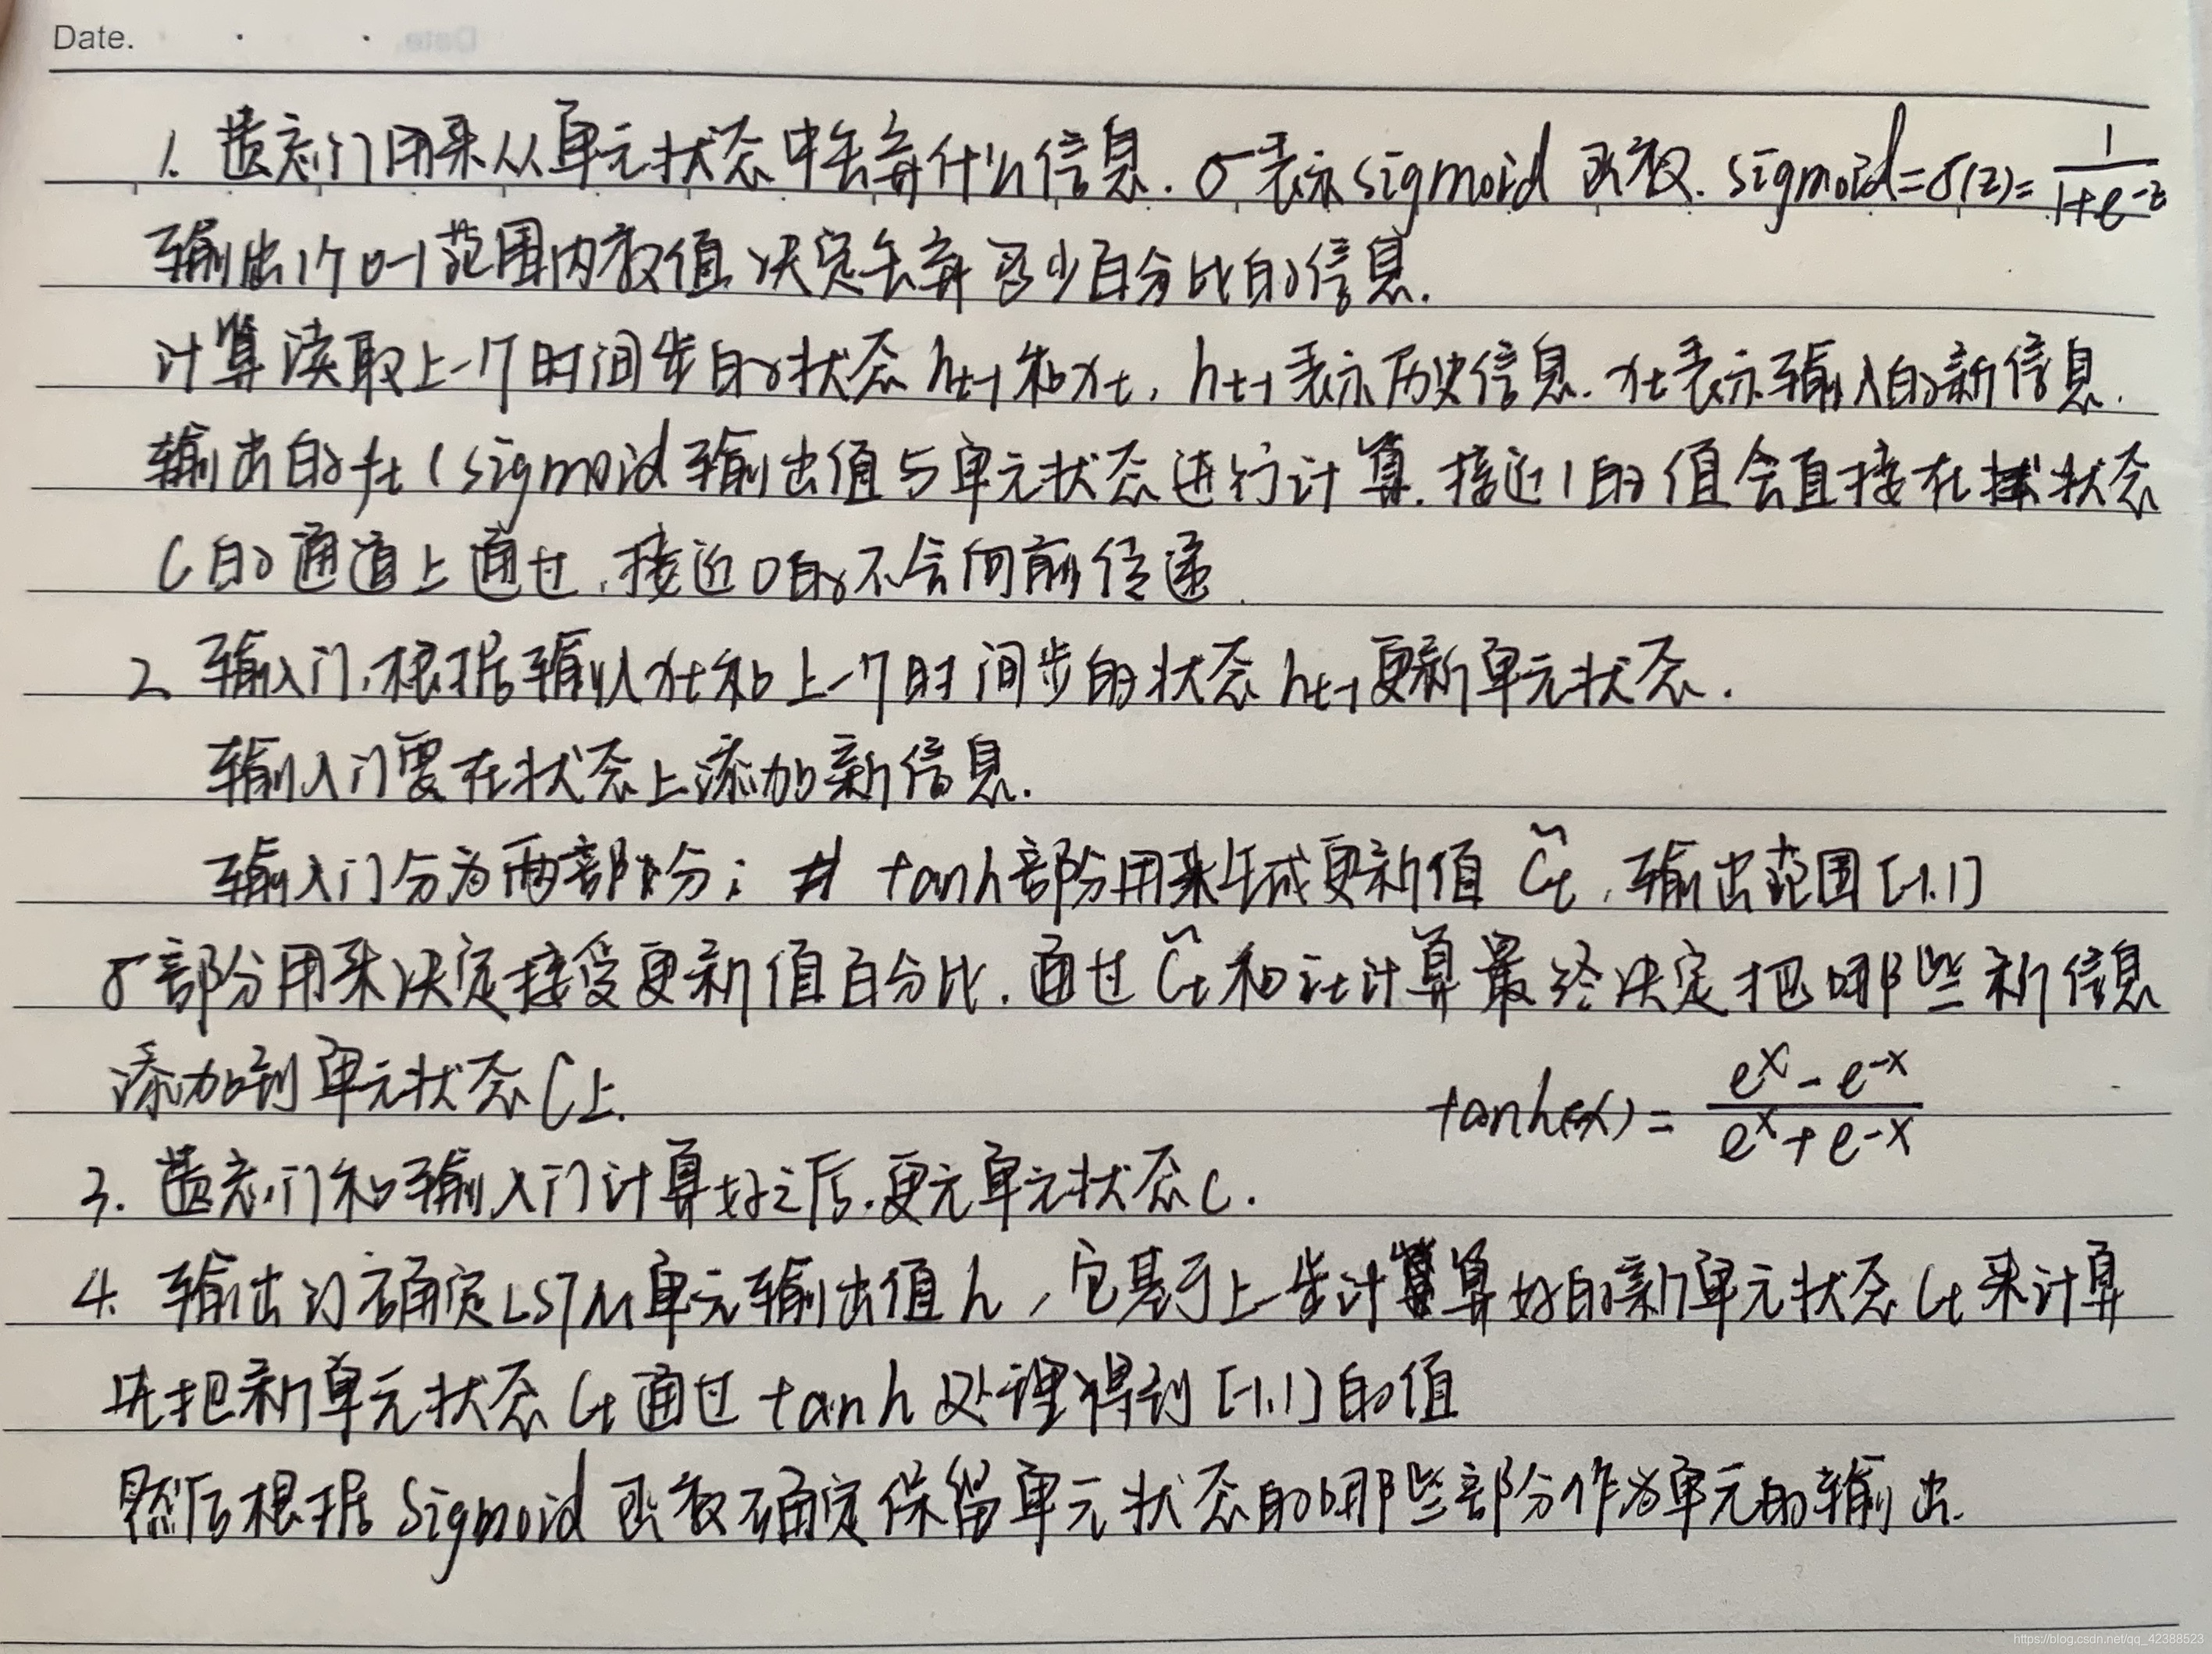 Date.
1. 遗忘门用来从单元状态中去弃什么信息. σ表示sigmoid 函数. sigmoid=σ(z)= \frac{1}{1+e^{-z}}
输出1个0-1范围内数值 决定去弃多少百分比的信息.
计算读取上一个时间步的状态 h_{t-1} 和 x_t, h_{t-1} 表示历史信息. x_t表示输入的新信息.
输出的 f_t (sigmoid 输出值与单元状态进行计算. 接近1的值会直接在状态
C的通道上通过, 接近0的不会向前传递.
2. 输入门, 根据输入x_t和上一个时间步的状态 h_{t-1} 更新单元状态.
输入门要在状态上添加新信息.
输入门分为两部分; tanh部份用来生成更新值 \tilde{C}_t, 输出范围[-1.1]
σ部分用来决定接受更新值百分比. 通过 \tilde{C}_t 和 i_t计算最终决定把哪些新信息
添加到单元状态C上.
tanh(x) = \frac{e^x - e^{-x}}{e^x + e^{-x}}
3. 遗忘门和输入门计算好之后. 更元单元状态C.
4. 输出门确定LSTM单元输出值 h, 它基于上一步计算好的新单元状态 C_t 来计算
先把新单元状态 C_t 通过 tanh 处理得到 [-1.1] 的值
然后根据 Sigmoid 函数确定保留单元状态的哪些部分作为单元的输出.
https://blog.csdn.net/qq_42388523